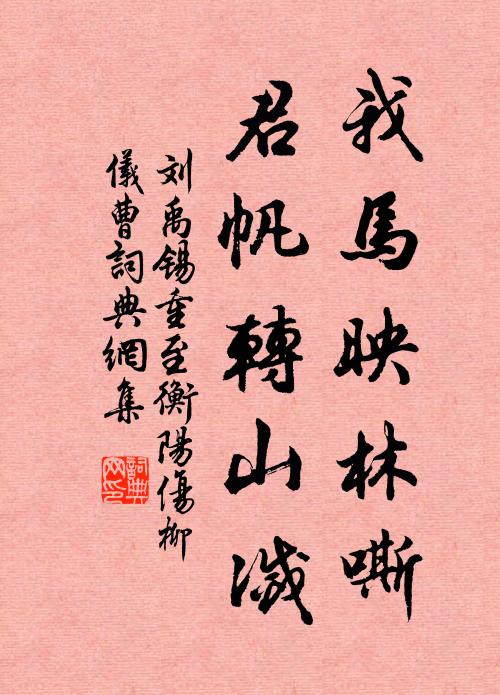 我馬映林嘶
君帆轉山滅
刘禹锡重至衡陽傷柳
儀曹詞典網集
詞典網印